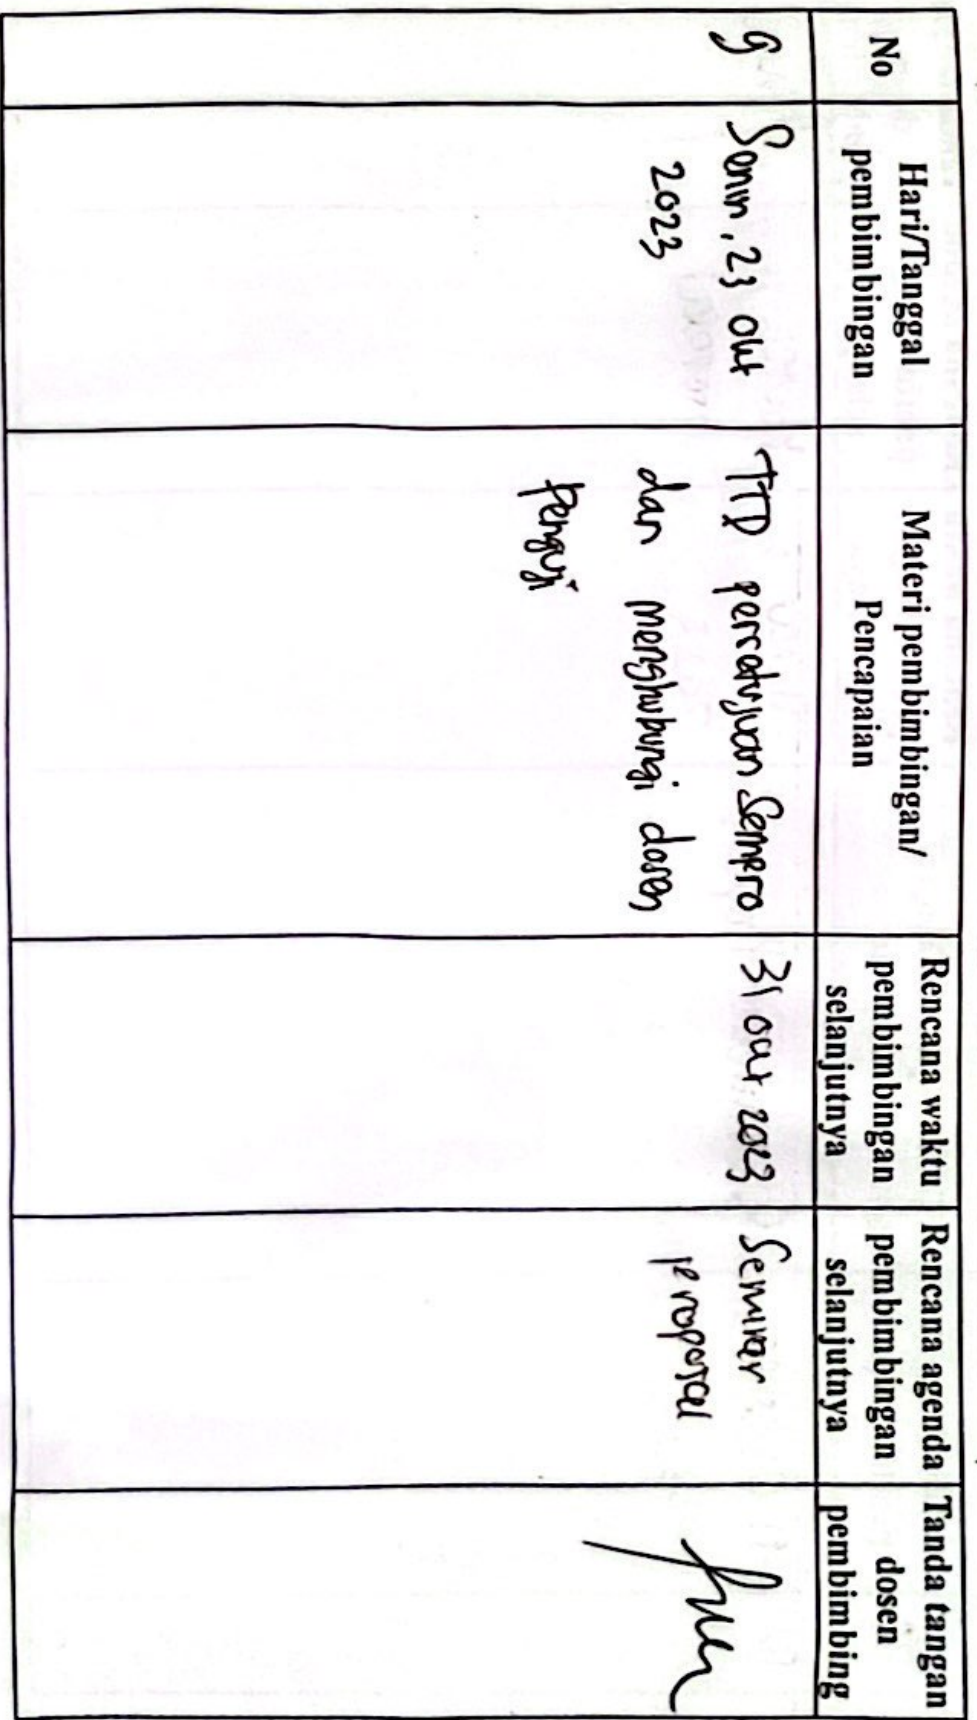 No
Hari/Tanggal
pembimbingan
Materi pembimbingan/
Pencapaian
Rencana waktu
pembimbingan
selanjutnya
Rencana agenda
pembimbingan
selanjutnya
Tanda tangan
dosen
pembimbing
9
Senin, 23 Okt
2023
TTD persetujuan Sempro
dan menghubungi dosen
Penguji
31 Okt 2023
Seminar
Proposal